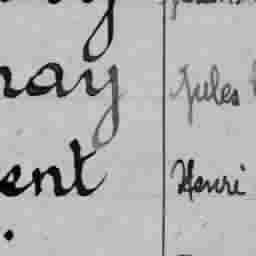 nay Jules
ent Henri
.